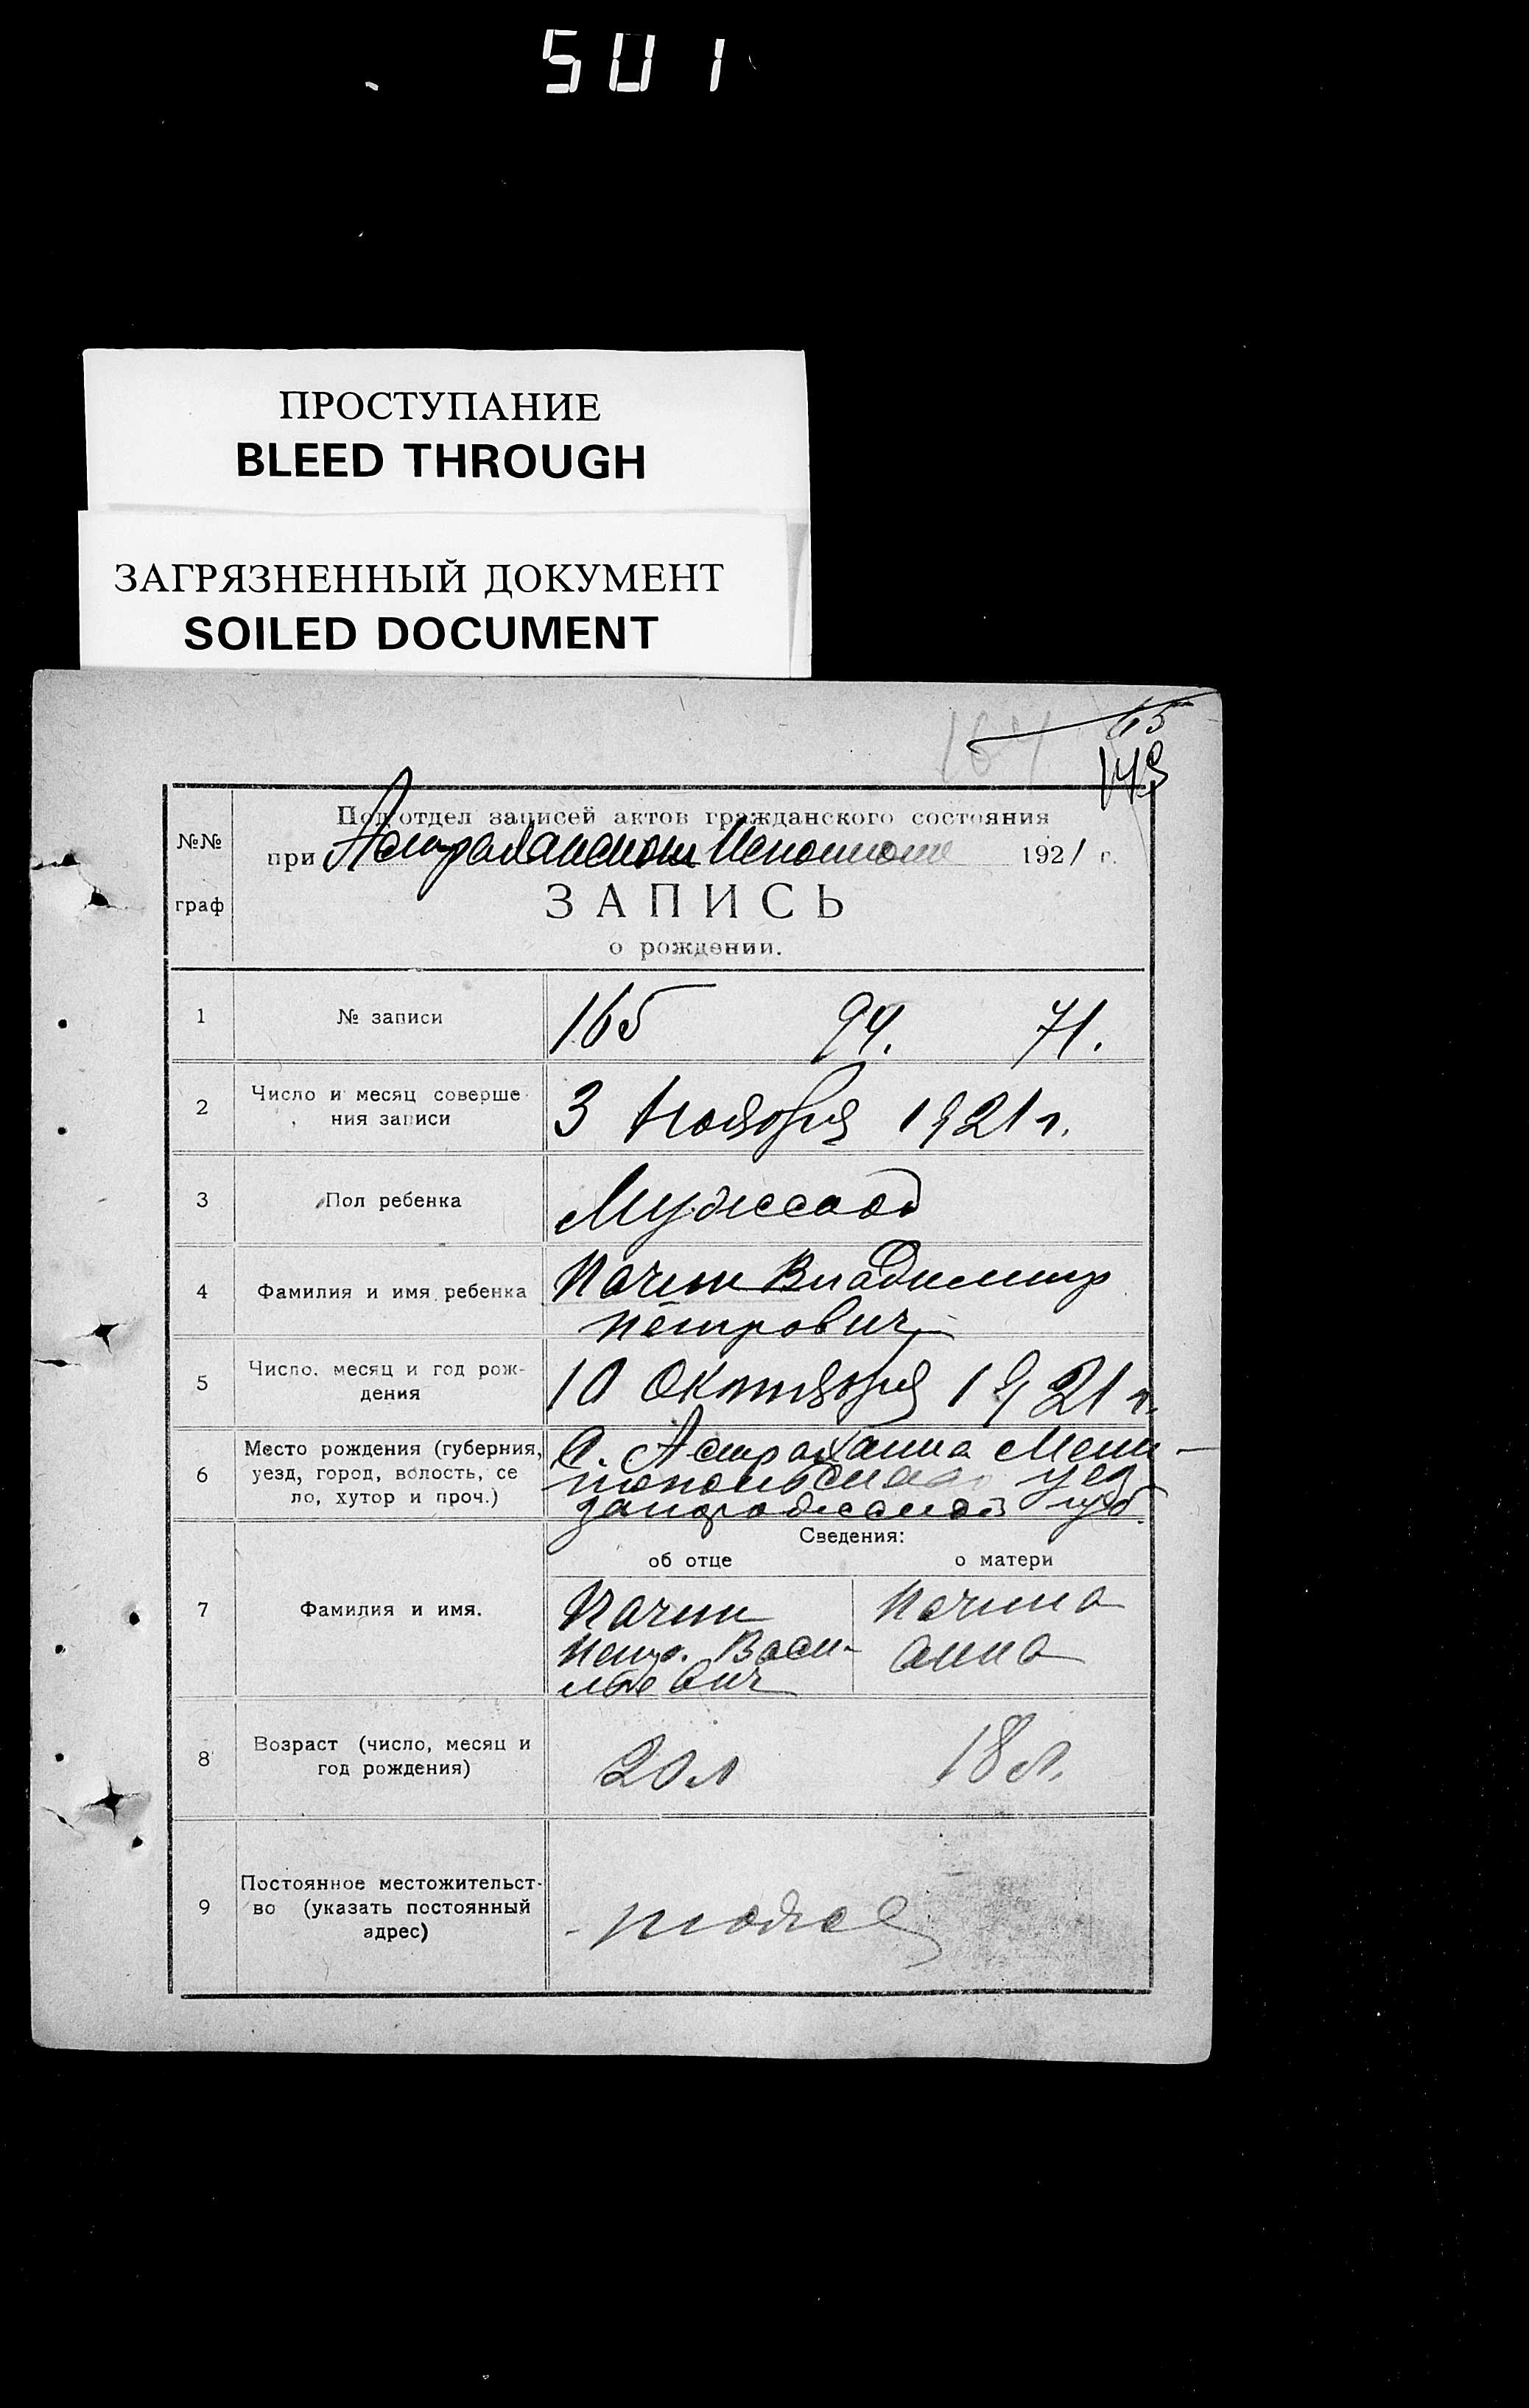 501
ПРОСТУПАНИЕ
BLEED THROUGH
ЗАГРЯЗНЕННЫЙ ДОКУМЕНТ
SOILED DOCUMENT
164 65
143
№№ граф
Подотдел записей актов гражданского состояния
при Астраханском Исполкоме 1921 г.
ЗАПИСЬ
о рождении.
1 № записи 165 94. 71.
2 Число и месяц соверше
ния записи 3 Ноября 1921 г.
3 Пол ребенка Мужской
4 Фамилия и имя ребенка Качин Владимир
Петрович
5 Число, месяц и год рож-
дения 10 Октября 1921 г.
6 Место рождения (губерния,
уезд, город, волость, се
ло, хутор и проч.) С. Астраханка Мели-
топольского уез
запорожской губ.
Сведения:
об отце о матери
7 Фамилия и имя. Качин Качина
Петр. Васи- анна
льевич
8 Возраст (число, месяц и
год рождения) 20 л 18 л.
9 Постоянное местожительст-
во (указать постоянный
адрес) - тоже